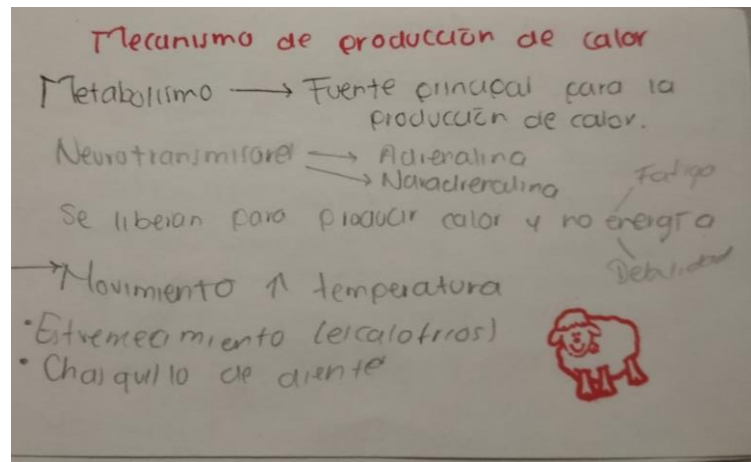 Mecanismo de producción de calor
Metabolismo → Fuente principal para la
producción de calor.
Neurotransmisores → Adrenalina
→ Noradrenalina
Fatiga
Se liberan para producir calor y no energía
Debilidad
→ Movimiento ↑ temperatura
• Estremecimiento (escalofrios)
• Chasquillo de diente